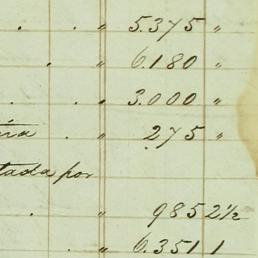 . " 5.375 "
. " 6.180 "
. . " 3.000 "
. " 275 "
tada por
. " 985 2½
. " 6.351 1